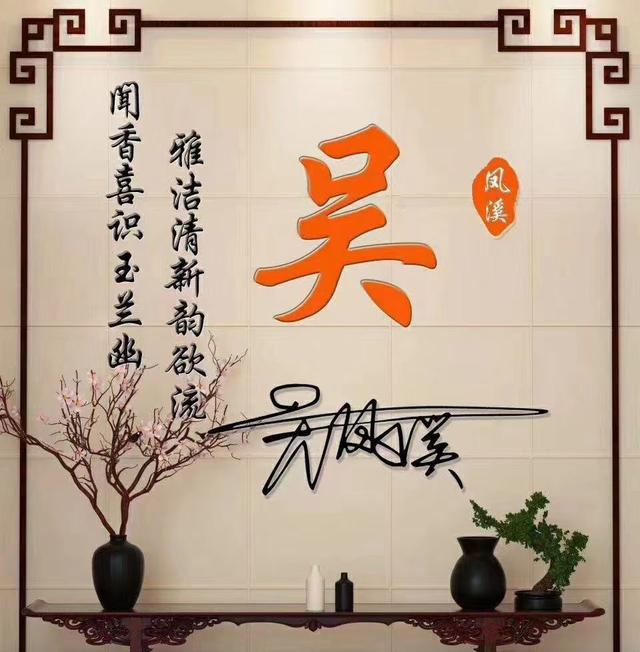 凤溪
吴
吴凤溪
雅洁清新韵欲流
聞香喜识玉兰幽